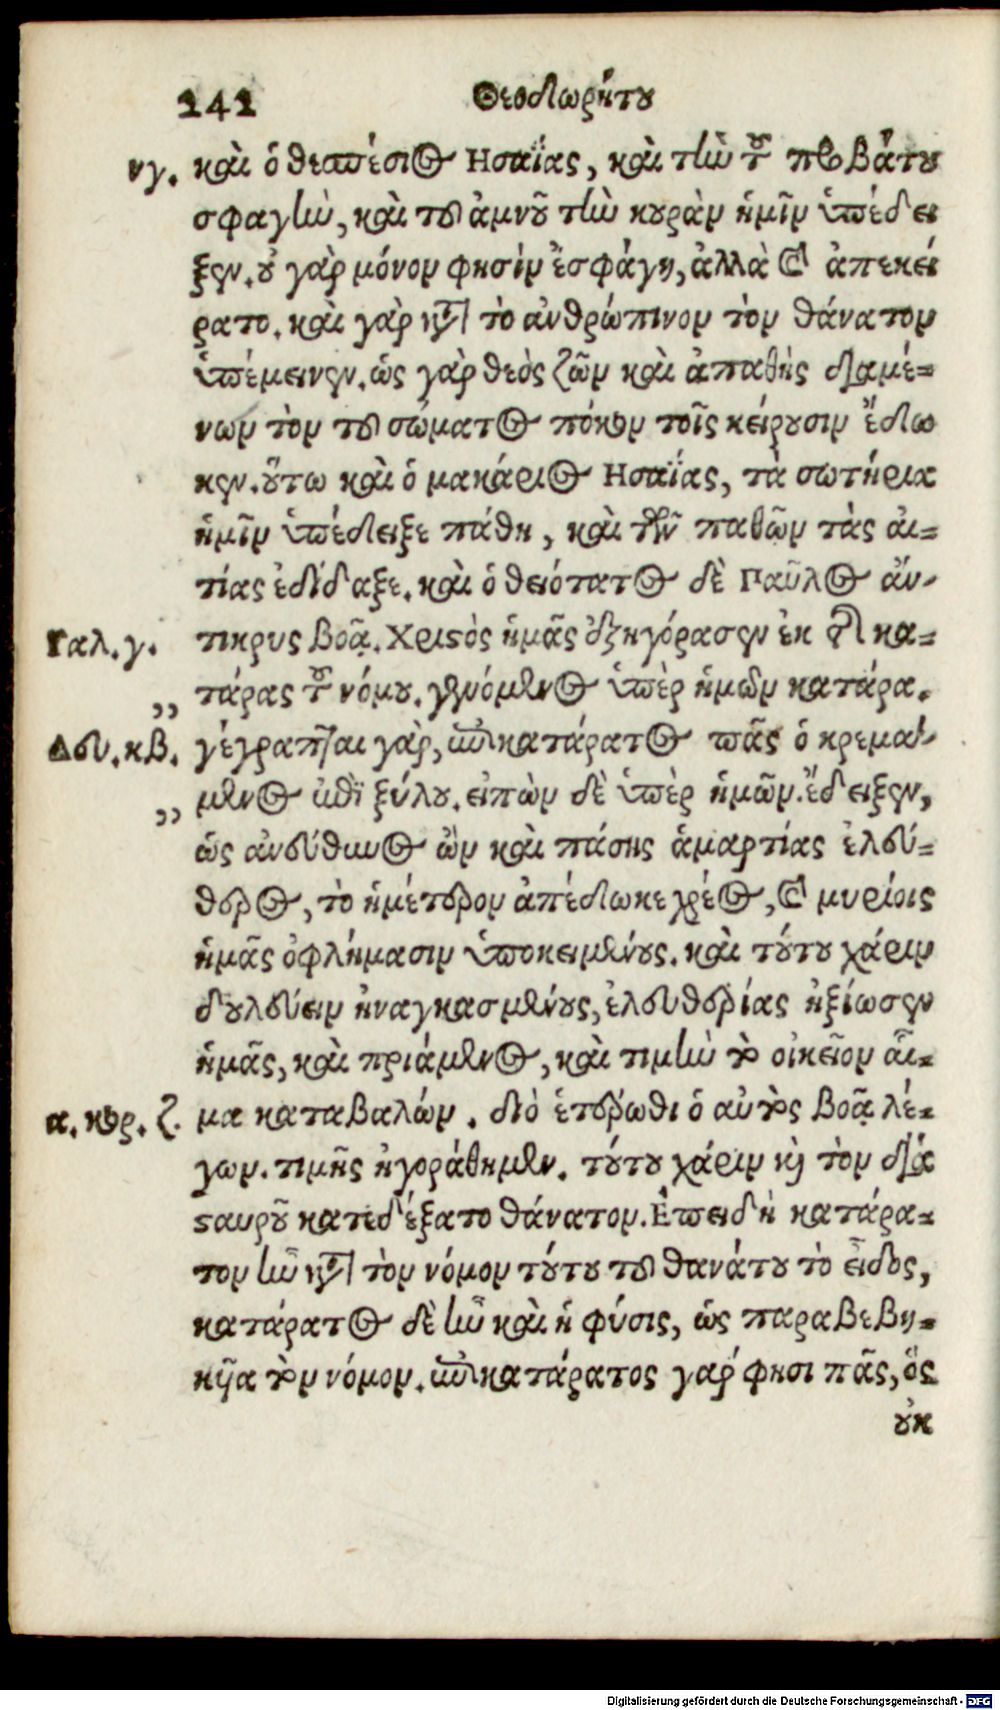 242 Θεοδωρήτου
νγ. καὶ ὁ θεσπέσιος Ησαΐας, καὶ τὴν τοῦ προβάτου
σφαγὴν, καὶ τοῦ ἀμνοῦ τὴν κουρὰν ἡμῖν ὑπέδει
ξεν. οὐ γὰρ μόνον φησὶν ἐσφάγη, ἀλλὰ καὶ ἀπεκεί
ρατο. καὶ γὰρ κατὰ τὸ ἀνθρώπινον τὸν θάνατον
ὑπέμεινεν. ὡς γὰρ θεὸς ζῶν καὶ ἀπαθὴς διαμέ-
νων τὸν τοῦ σώματος πόκον τοῖς κείρουσιν ἔδω
κεν. οὕτω καὶ ὁ μακάριος Ησαΐας, τὰ σωτήρια
ἡμῖν ὑπέδειξε πάθη, καὶ τῶν παθῶν τὰς αἰ-
τίας ἐδίδαξε. καὶ ὁ θειότατος δὲ Παῦλος ἄν-
Γαλ. γ. τικρυς βοᾷ. Χριστὸς ἡμᾶς ἐξηγόρασεν ἐκ τῆς κα-
,, τάρας τοῦ νόμου. γενόμενος ὑπὲρ ἡμῶν κατάρα.
Δευ. κβ. γέγραπται γὰρ, ἐπικατάρατος πᾶς ὁ κρεμά-
,, μενος ἐπὶ ξύλου. εἰπὼν δὲ ὑπὲρ ἡμῶν. ἔδειξεν,
ὡς ἀνεύθυνος ὢν καὶ πάσης ἁμαρτίας ἐλεύ-
θερος, τὸ ἡμέτερον ἀπέδωκε χρέος, καὶ μυρίοις
ἡμᾶς ὀφλήμασιν ὑποκειμένους. καὶ τούτου χάριν
δουλεύειν ἠναγκασμένους, ἐλευθερίας ἠξίωσεν
ἡμᾶς, καὶ πριάμενος, καὶ τιμὴν τὸ οἰκεῖον αἷ-
α. κορ. ζ. μα καταβαλών. διὸ ἑτέρωθι ὁ αὐτὸς βοᾷ λέ-
γων. τιμῆς ἠγοράθημεν. τούτου χάριν καὶ τὸν διὰ
σταυροῦ κατεδέξατο θάνατον. Ἐπειδὴ κατάρα-
τον ἦν κατὰ τὸν νόμον τούτου τοῦ θανάτου τὸ εἶδος,
κατάρατος δὲ ἦν καὶ ἡ φύσις, ὡς παραβεβη-
κῆα τὸν νόμον. ἐπικατάρατος γάρ φησι πᾶς, ὃς
οὐκ
Digitalisierung gefördert durch die Deutsche Forschungsgemeinschaft - DFG